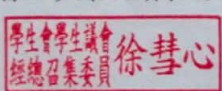 學生會學生議會
經總召集委員
徐彗心